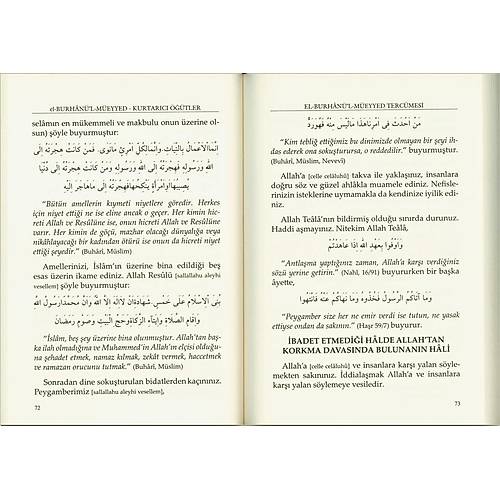 el-BURHÂNÜ'L-MÜEYYED - KURTARICI ÖĞÜTLER
selâmın en mükemmeli ve makbulu onun üzerine ol-
sun) şöyle buyurmuştur:
إنما الأعمال بالنيات، وإنما لكل امرئ مانوى، فمن كانت هجرته إلى
الله ورسوله فهجرته إلى الله ورسوله ومن كانت هجرته إلى دنيا
يصيبها وامرأة ينكحها فهجرته إلى ماهاجر إليه
"Bütün amellerin kıymeti niyetlere göredir. Herkes
için niyet ettiği ne ise eline ancak o geçer. Her kimin hic-
reti Allah ve Resûlüne ise, onun hicreti Allah ve Resûlüne
varır. Her kimin de göçü, mazhar olacağı dünyalığa veya
nikâhlayacağı bir kadından ötürü ise onun da hicreti niyet
ettiği şeyedir." (Buhârî, Müslim)
Amellerinizi, İslâm'ın üzerine bina edildiği beş
esas üzerine ikame ediniz. Resûlü [sallallahu aleyhi
vesellem], şöyle buyurmuştur:
بنى الاسلام على خمس شهادة ان لااله الا الله وان محمدا رسول الله
وإقام الصلاة وإيتاء الزكاة وحج البيت وصوم رمضان
"İslâm, beş şey üzerine bina olunmuştur. Allah'tan baş-
ka ilah olmadığına ve Muhammed'in Allah'ın elçisi olduğu-
na şehadet etmek, namaz kılmak, zekât vermek, haccetmek
ve ramazan orucunu tutmak." (Buhârî, Müslim)
Sonradan dine sokuşturulan bidatlerden kaçınınız.
Peygamberimiz [sallallahu aleyhi vesellem],
72
EL-BURHÂNÜ'L-MÜEYYED TERCÜMESİ
من احدث فى امرنا هذا ماليس منه فهو رد
"Kim tebliğ ettiğimiz bu dinimizde olmayan bir şeyi ih-
das ederek ona sokuşturursa, o reddedilir." buyurmuştur.
(Buhârî, Müslim, Nevevî)
Allah'a [celle celâluhû] takva ile yaklaşınız, insanlara
doğru söz ve güzel ahlâkla muamele ediniz. Nefisle-
rinizin isteklerine uymamakla da kendinize iyilik edi-
niz.
Allah Teâlâ'nın bildirmiş olduğu sınırda durunuz.
Haddi aşmayınız. Nitekim Allah Teâlâ,
واوفوا بعهد الله اذا عاهدتم
"Antlaşma yaptığınız zaman, Allah'a karşı verdiğiniz
sözü yerine getirin." (Nahl, 16/91) buyururken bir başka
âyette,
وما آتاكم الرسول فخذوه وما نهاكم عنه فانتهوا
"Peygamber size her ne emir verdi ise tutun, ne yasak
ettiyse ondan da sakının." (Haşr 59/7) buyurur.
İBADET ETMEDİĞİ HÂLDE ALLAH'TAN
KORKMA DAVASINDA BULUNANIN HÂLİ
Allah'a [celle celâluhû] ve insanlara karşı yalan söyle-
mekten sakınınız. İddialaşmak Allah'a ve insanlara
karşı yalan söylemeye vesiledir.
73